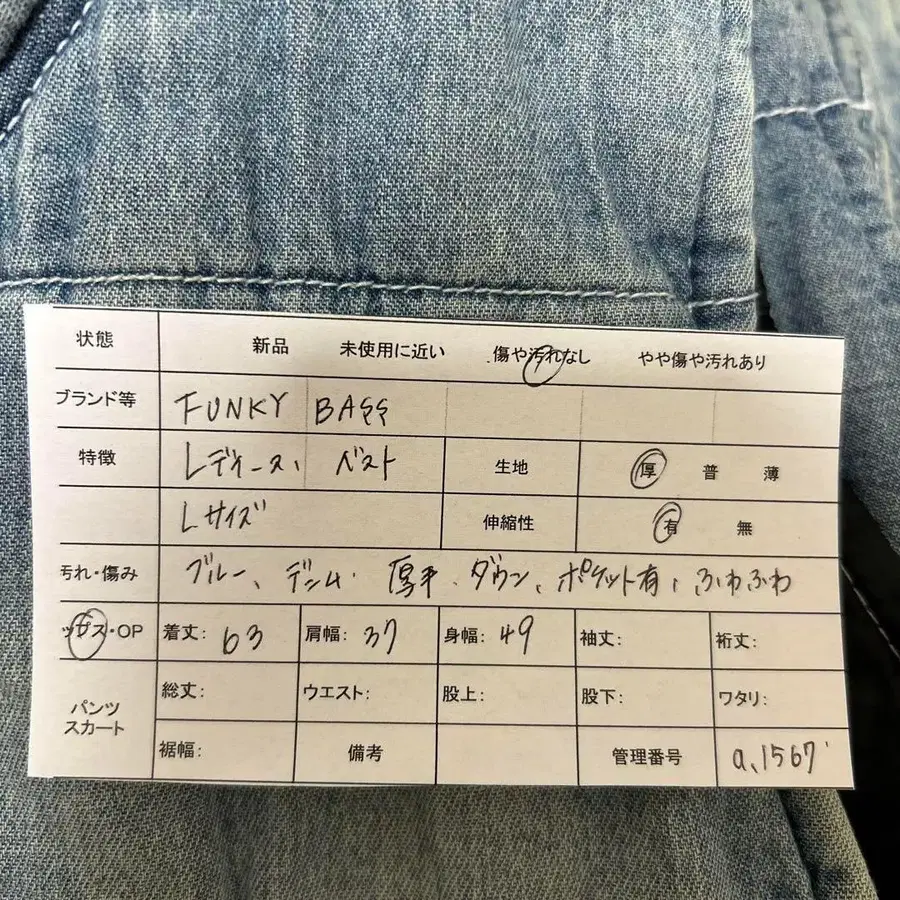 状態 新品 未使用に近い 傷や汚れなし やや傷や汚れあり
ブランド等 FUNKY BASS
特徴 レディース、 ベスト 生地 厚 普 薄
Lサイズ 伸縮性 有 無
汚れ・傷み ブルー、デニム、厚手、ダウン、ポケット有、ふわふわ
・OP 着丈: 63 肩幅: 37 身幅: 49 袖丈: 裄丈:
パンツ スカート 総丈: ウエスト: 股上: 股下: ワタリ:
裾幅: 備考 管理番号 a,1567